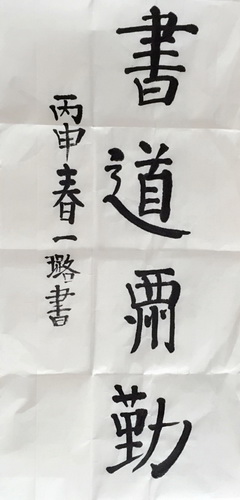 書道酬勤
丙申春一璐書